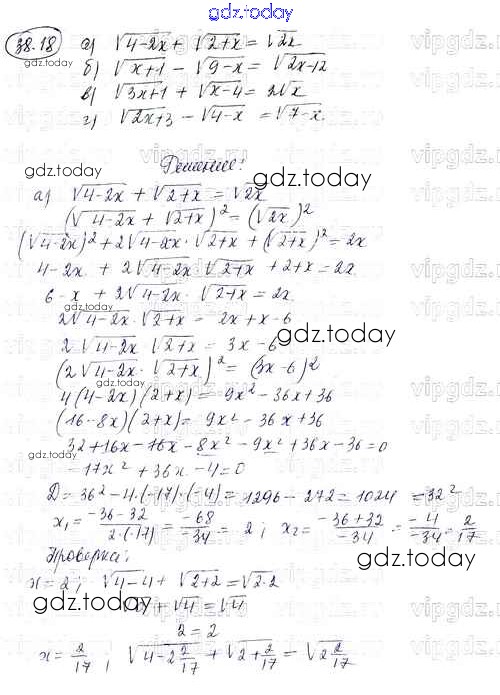 gdz.today
38.18 а) √4-2x + √2+x = √2x
б) √x+1 - √9-x = √2x-12
в) √3x+1 + √x-4 = 2√x
г) √2x+3 - √4-x = √7-x
gdz.today
Решение:
gdz.today
а) √4-2x + √2+x = √2x
(√4-2x + √2+x)² = (√2x)²
(√4-2x)² + 2√4-2x · √2+x + (√2+x)² = 2x
4-2x + 2√4-2x √2+x + 2+x = 2x
6-x + 2√4-2x · √2+x = 2x
2√4-2x · √2+x = 2x+x-6
gdz.today
2√4-2x √2+x = 3x-6
(2√4-2x · √2+x)² = (3x-6)²
4(4-2x)(2+x) = 9x² - 36x+36
(16-8x)(2+x) = 9x² - 36x+36
gdz.today
32+16x-16x-8x²-9x²+36x-36=0
-17x² + 36x - 4=0
D= 36² - 4·(-17)·(-4) = 1296 - 272 = 1024 = 32²
x₁ = -36-32 / 2·(-17) = -68 / -34 = 2; x₂ = -36+32 / -34 = -4 / -34 = 2/17
Проверка:
gdz.today
x=2; √4-4 + √2+2 = √2·2
gdz.today
+ √4 = √4
2=2
x = 2/17; √4-2 2/17 + √2+2/17 = √2 2/17
vipgdz.ru